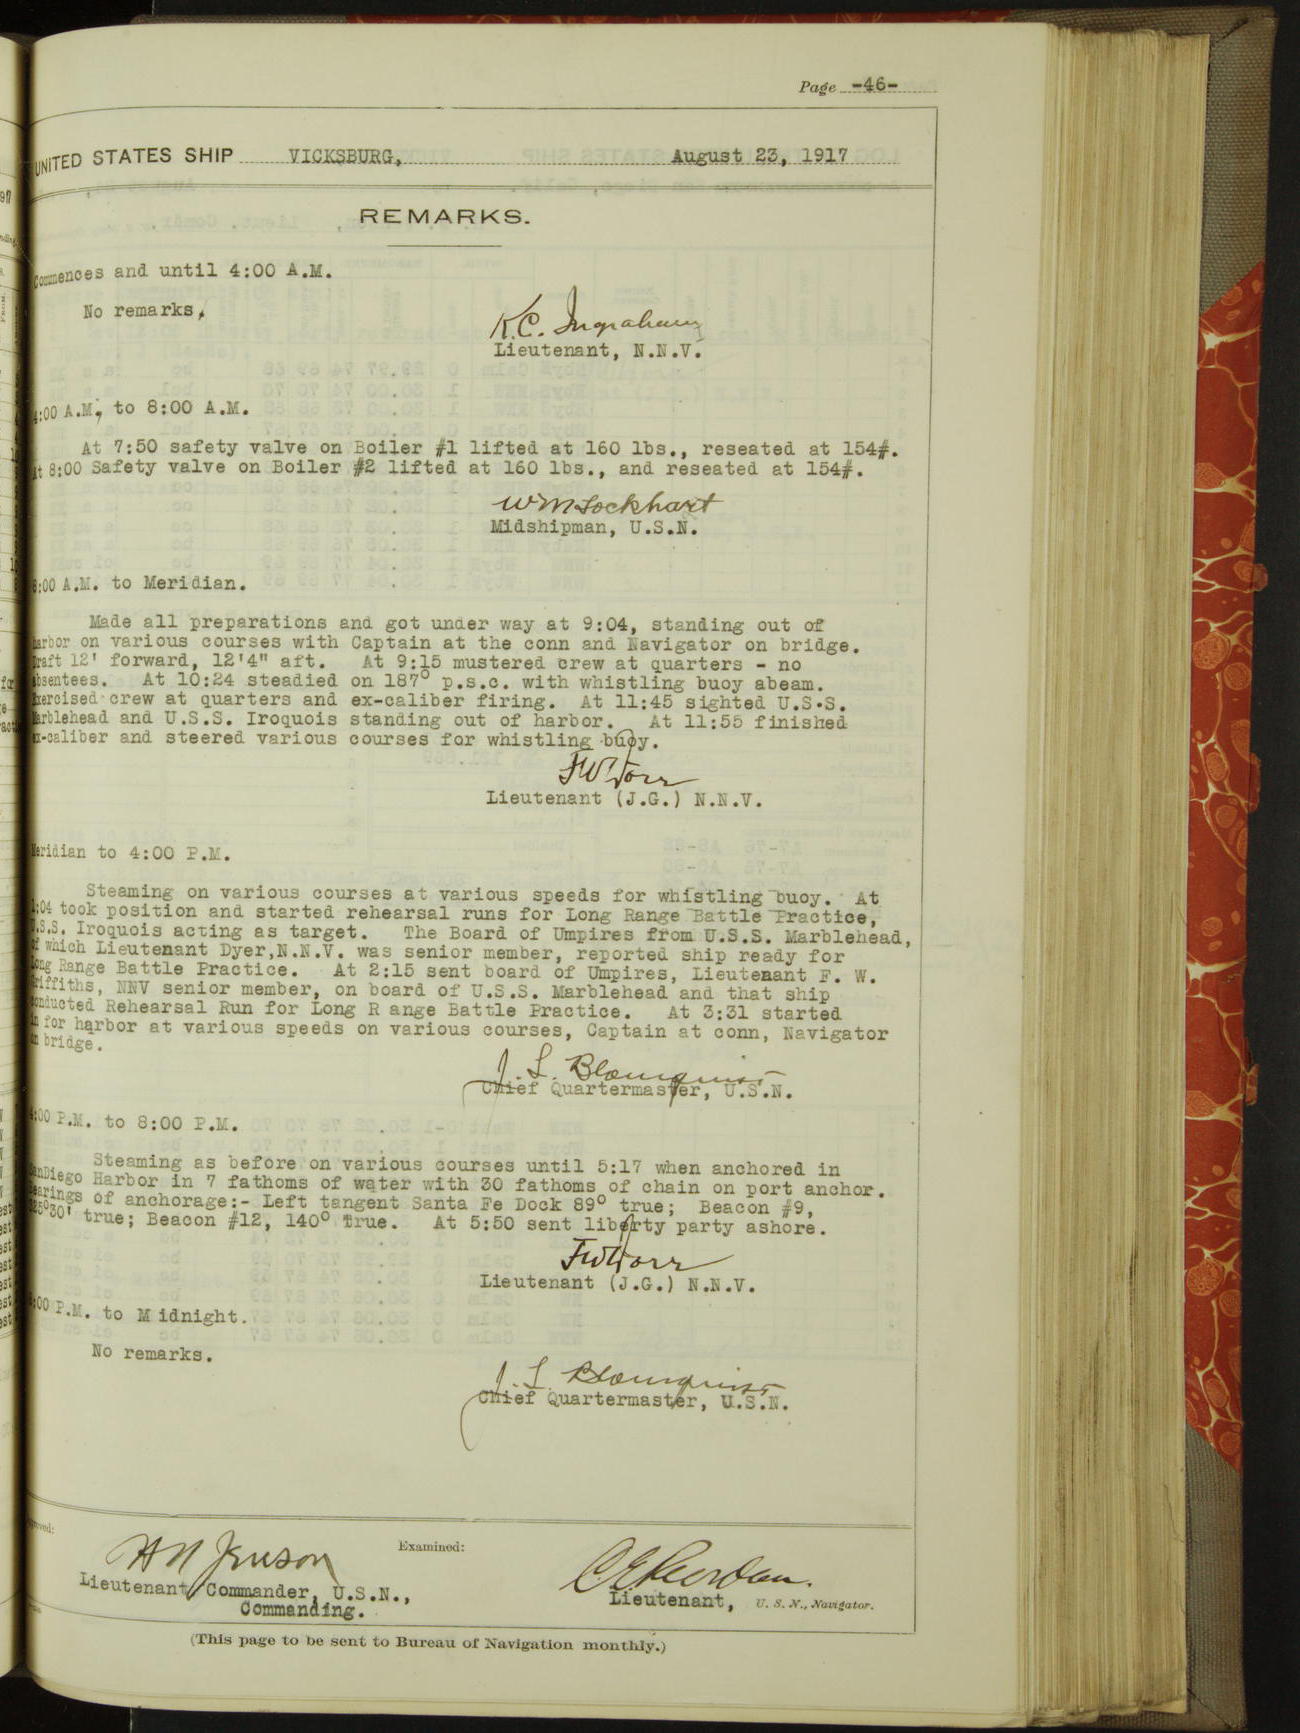 Page -46-
UNITED STATES SHIP VICKSBURG, August 23, 1917
REMARKS.
Commences and until 4:00 A.M.
No remarks.
K.C. Ingraham
Lieutenant, N.N.V.
4:00 A.M. to 8:00 A.M.
At 7:50 safety valve on Boiler #1 lifted at 160 lbs., reseated at 154#.
At 8:00 Safety valve on Boiler #2 lifted at 160 lbs., and reseated at 154#.
W M Lockhart
Midshipman, U.S.N.
8:00 A.M. to Meridian.
Made all preparations and got under way at 9:04, standing out of
harbor on various courses with Captain at the conn and Navigator on bridge.
Draft 12' forward, 12'4" aft. At 9:15 mustered crew at quarters - no
absentees. At 10:24 steadied on 187° p.s.c. with whistling buoy abeam.
Exercised crew at quarters and ex-caliber firing. At 11:45 sighted U.S.S.
Marblehead and U.S.S. Iroquois standing out of harbor. At 11:55 finished
ex-caliber and steered various courses for whistling buoy.
Lieutenant (J.G.) N.N.V.
Meridian to 4:00 P.M.
Steaming on various courses at various speeds for whistling buoy. At
1:04 took position and started rehearsal runs for Long Range Battle Practice,
U.S.S. Iroquois acting as target. The Board of Umpires from U.S.S. Marblehead,
of which Lieutenant Dyer,N.N.V. was senior member, reported ship ready for
Long Range Battle Practice. At 2:15 sent board of Umpires, Lieutenant F. W.
Griffiths, NNV senior member, on board of U.S.S. Marblehead and that ship
conducted Rehearsal Run for Long R ange Battle Practice. At 3:31 started
in for harbor at various speeds on various courses, Captain at conn, Navigator
on bridge.
J. L. Blomquist
Chief Quartermaster, U.S.N.
4:00 P.M. to 8:00 P.M.
Steaming as before on various courses until 5:17 when anchored in
SanDiego Harbor in 7 fathoms of water with 30 fathoms of chain on port anchor.
Bearings of anchorage:- Left tangent Santa Fe Dock 89° true; Beacon #9,
30' true; Beacon #12, 140° true. At 5:50 sent liberty party ashore.
Lieutenant (J.G.) N.N.V.
8:00 P.M. to M idnight.
No remarks.
J. L. Blomquist
Chief Quartermaster, U.S.N.
Approved:
Examined:
Lieutenant Commander, U.S.N.,
Commanding.
Lieutenant, U. S. N., Navigator.
(This page to be sent to Bureau of Navigation monthly.)